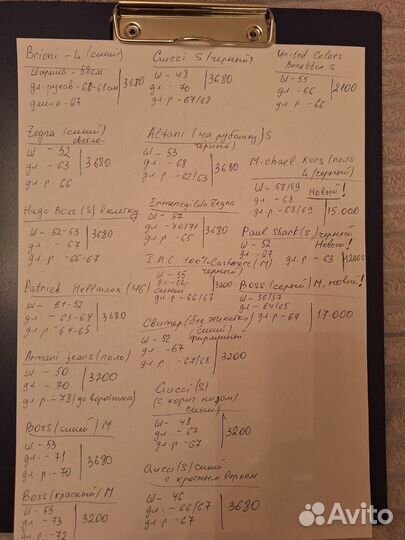 Brioni - L (синий)
ширина - 58см
дл. рукав - 60-61см
длина - 67
3680
Zegna (синий)
светло-
Ш - 52
дл. - 63
дл. р. 66
3680
Hugo Boss (S) в клетку
Ш - 52-53
дл. - 67
дл. р - 66-67
3680
Patrick Hellmann (46) синий
Ш - 51-52
дл. - 63-64
дл. р - 64-65
3680
Armani jeans (поло)
Ш - 50
дл. - 70
дл. р. - 78 (до воротника)
3200
Boss (синий) M
Ш - 53
дл. - 71
дл. р. - 70
3680
Boss (красный) M
Ш - 55
дл. - 73
дл. р - 72
3200
Gucci S (черный)
Ш - 48
дл. - 70
дл. р - 67/68
3680
(на рубашку) S
черный
Ш - 53
дл. - 68
дл. р - 62/63
3680
Ermenegildo Zegna
Ш - 57
дл. - 70/71
дл. р - 65
3680
100% Cashmere (M)
черный
Ш - 55
дл. р - 66/67
3200
Свитер (без этикетки)
(синий)
фирменный
Ш - 52
дл. - 67
дл. р. - 67/68
3200
Gucci (S)
(с корич. низом)
синий
Ш - 48
дл. - 67
дл. р - 67
3200
Gucci (S) синий
с красным верхом
Ш - 46
дл. - 66/67
дл. р. - 67
3680
United Colors
Benetton S
Ш - 55
дл. - 66
дл. р. - 66
2100
Michael Kors (поло
L (черный)
Ш - 58/59
дл. - 68
дл. р - 68/69
Новый!
15.000
Paul Shark (S) черный
Новый!
Ш - 52
дл. - 67
дл. р. - 63
12000
Boss (серый) M, новый!
Ш - 56/57
дл. - 64/65
дл. р - 64
17.000
Avito